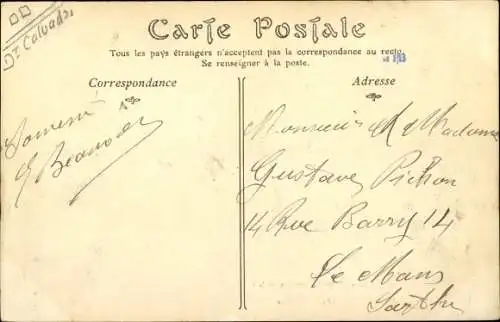 Dt Calvados
Carte Postale
Tous les pays étrangers n'acceptent pas la correspondance au recto.
Se renseigner à la poste.
Correspondance
Adresse
Souvenir
Monsieur & Madame
Gustave Pichon
14 Rue Barry 14
Le Mans
Sarthe